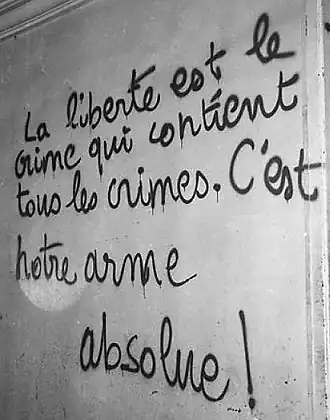 La liberte est le
crime qui contient
tous les crimes. C'est
notre arme
absolue !